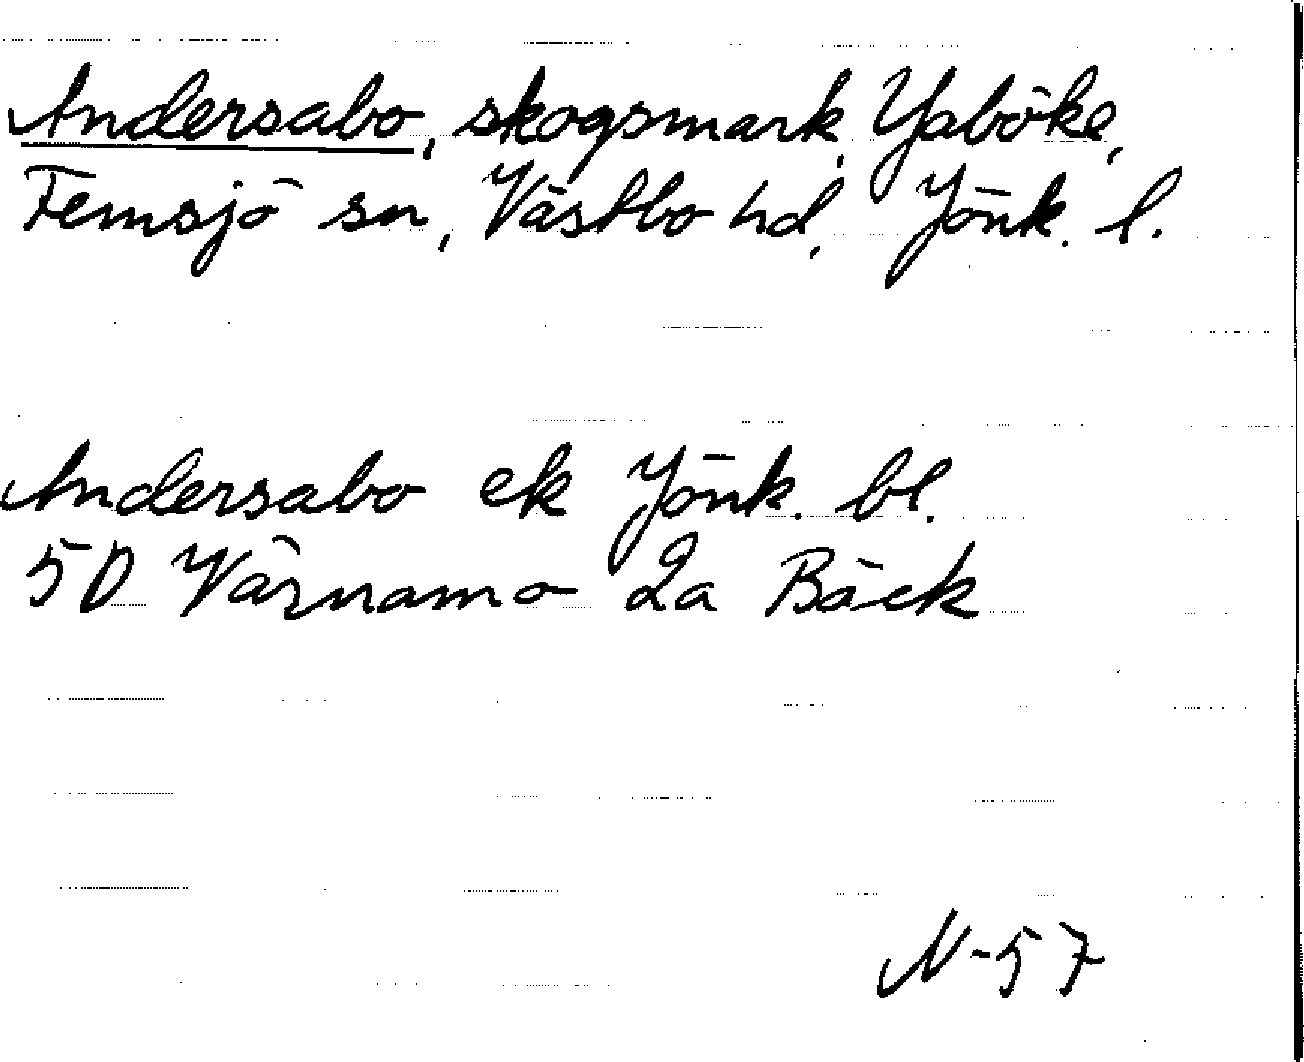 Andersabo, skogsmark, Yaböke,
Femsjö sn, Västbo hd, Jönk. l.
Andersabo ek Jönk. bl.
5D Värnamo 2a Bäck
N-57